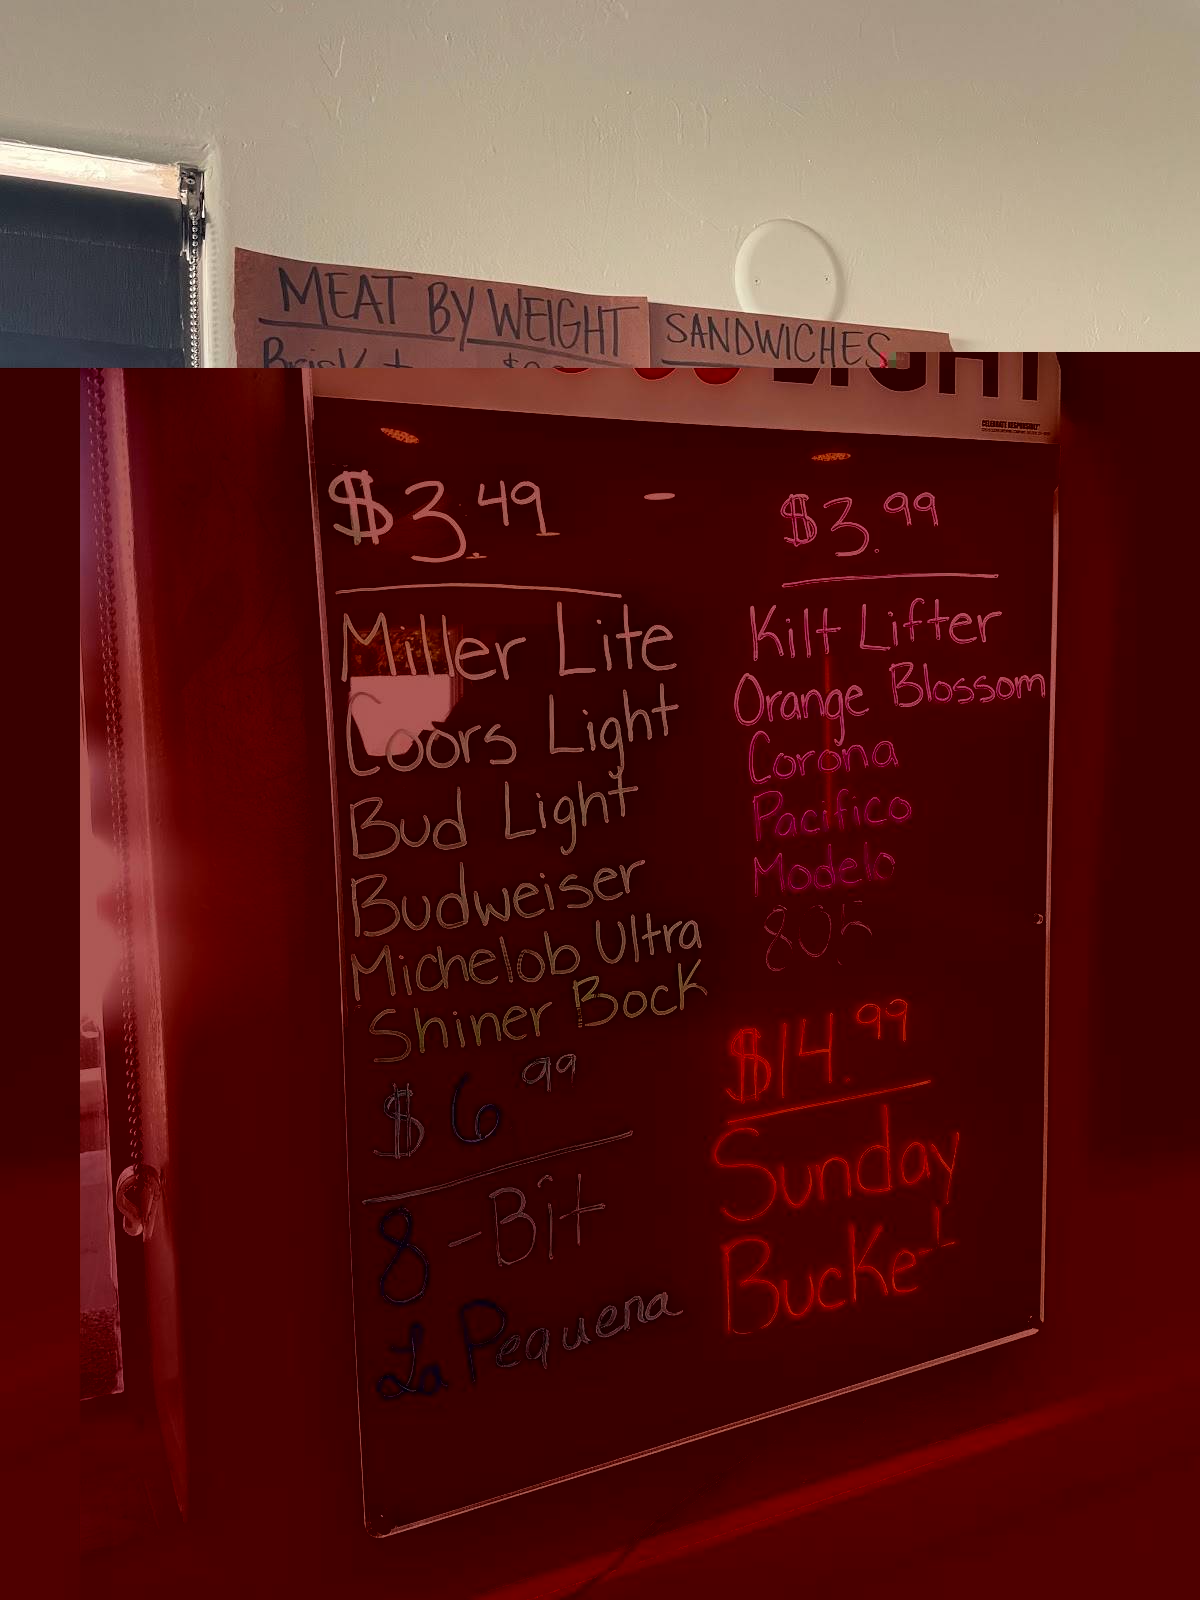 MEAT BY WEIGHT
SANDWICHES
LIGHT
CELEBRATE RESPONSIBLY
$3.49 -
Miller Lite
Coors Light
Bud Light
Budweiser
Michelob Ultra
Shiner Bock
$6.99
8-Bit
La Pequena
$3.99
Kilt Lifter
Orange Blossom
Corona
Pacifico
Modelo
805
$14.99
Sunday
Bucket